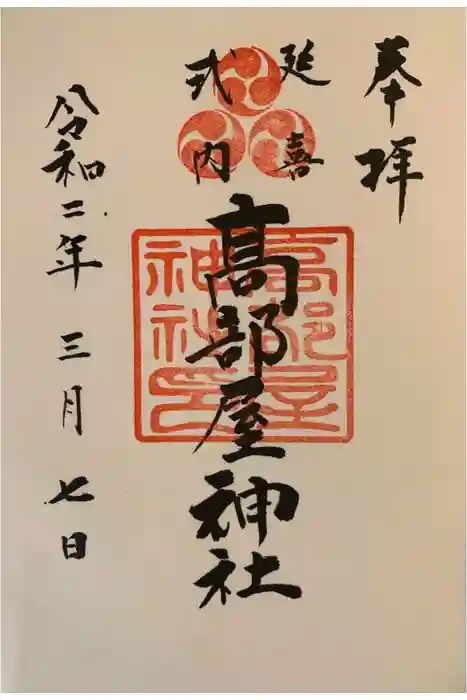 奉拝
延喜
式内
髙部屋神社
令和二年三月七日
高部屋
神社印